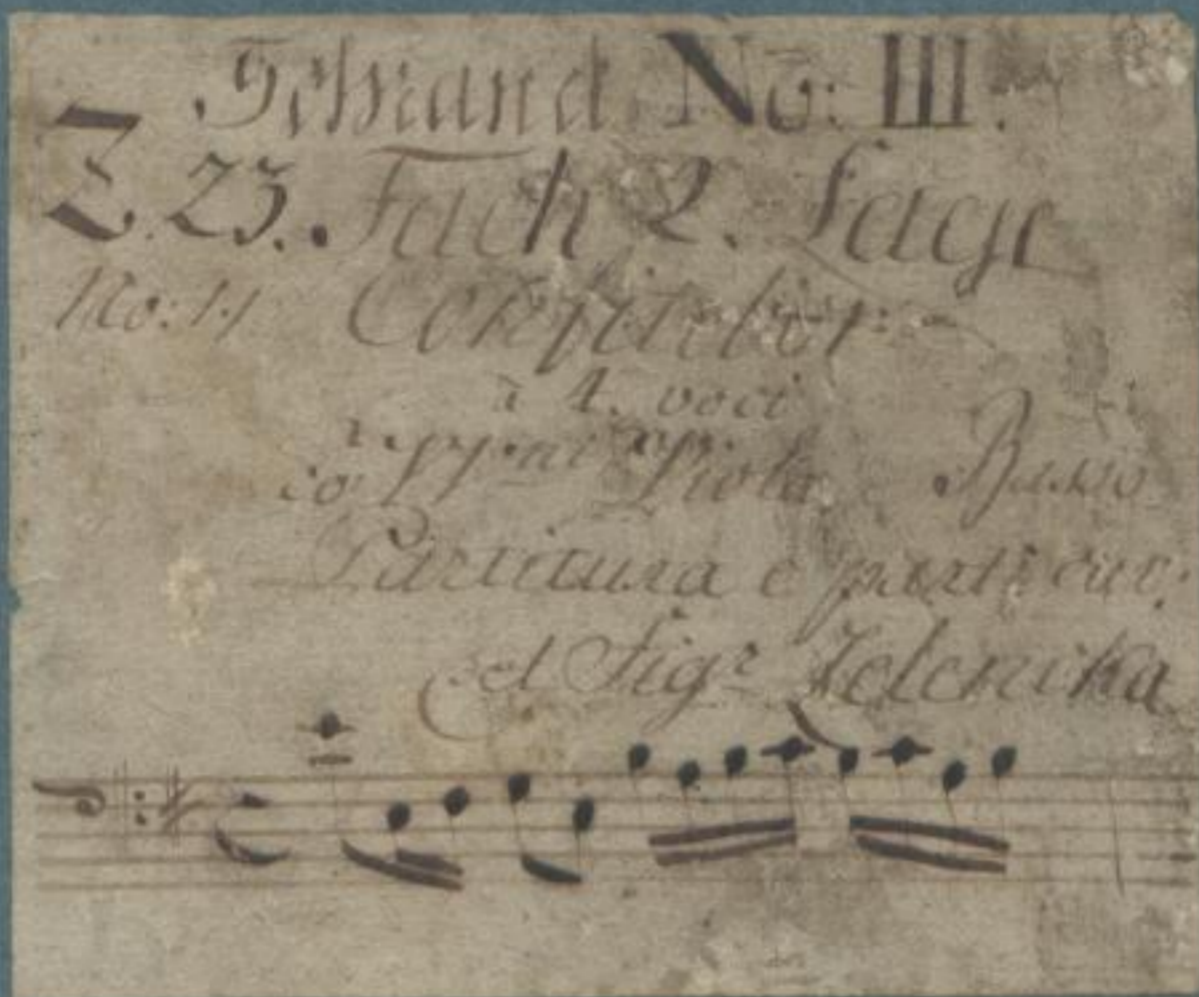 Schranck No: III.
Z. 23. Fach 2. Lage
No: 14 Confitebor
à 4. voci
co Viola e Basso
Partitura e parti cav:
del Sigr Zelenika